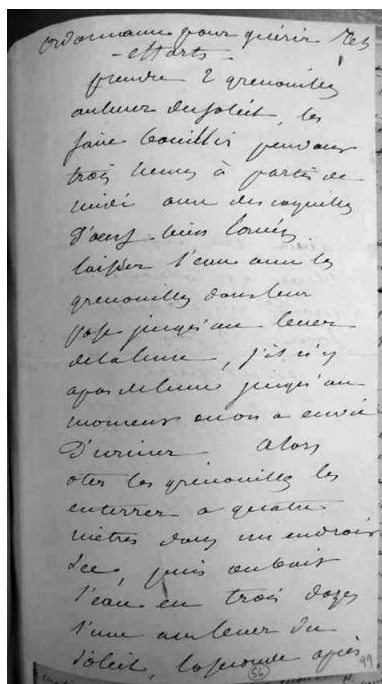 ordonnance pour guérir les
- efforts -
prendre 2 grenouilles
au lever du soleil, les
faire bouillir pendant
trois heures à partir de
midi avec des coquilles
d'oeuf bien
laisser l'eau avec les
grenouilles dans leur
jusqu'au lever
de la lune, s'il n'y
a pas de lune jusqu'au
moment où on a envie
D'uriner Alors
oter les grenouilles les
enterrer a quatre
mètres dans un endroit
sec, puis on boit
l'eau en trois dozes
l'une au lever du
soleil, la seconde après
56
99